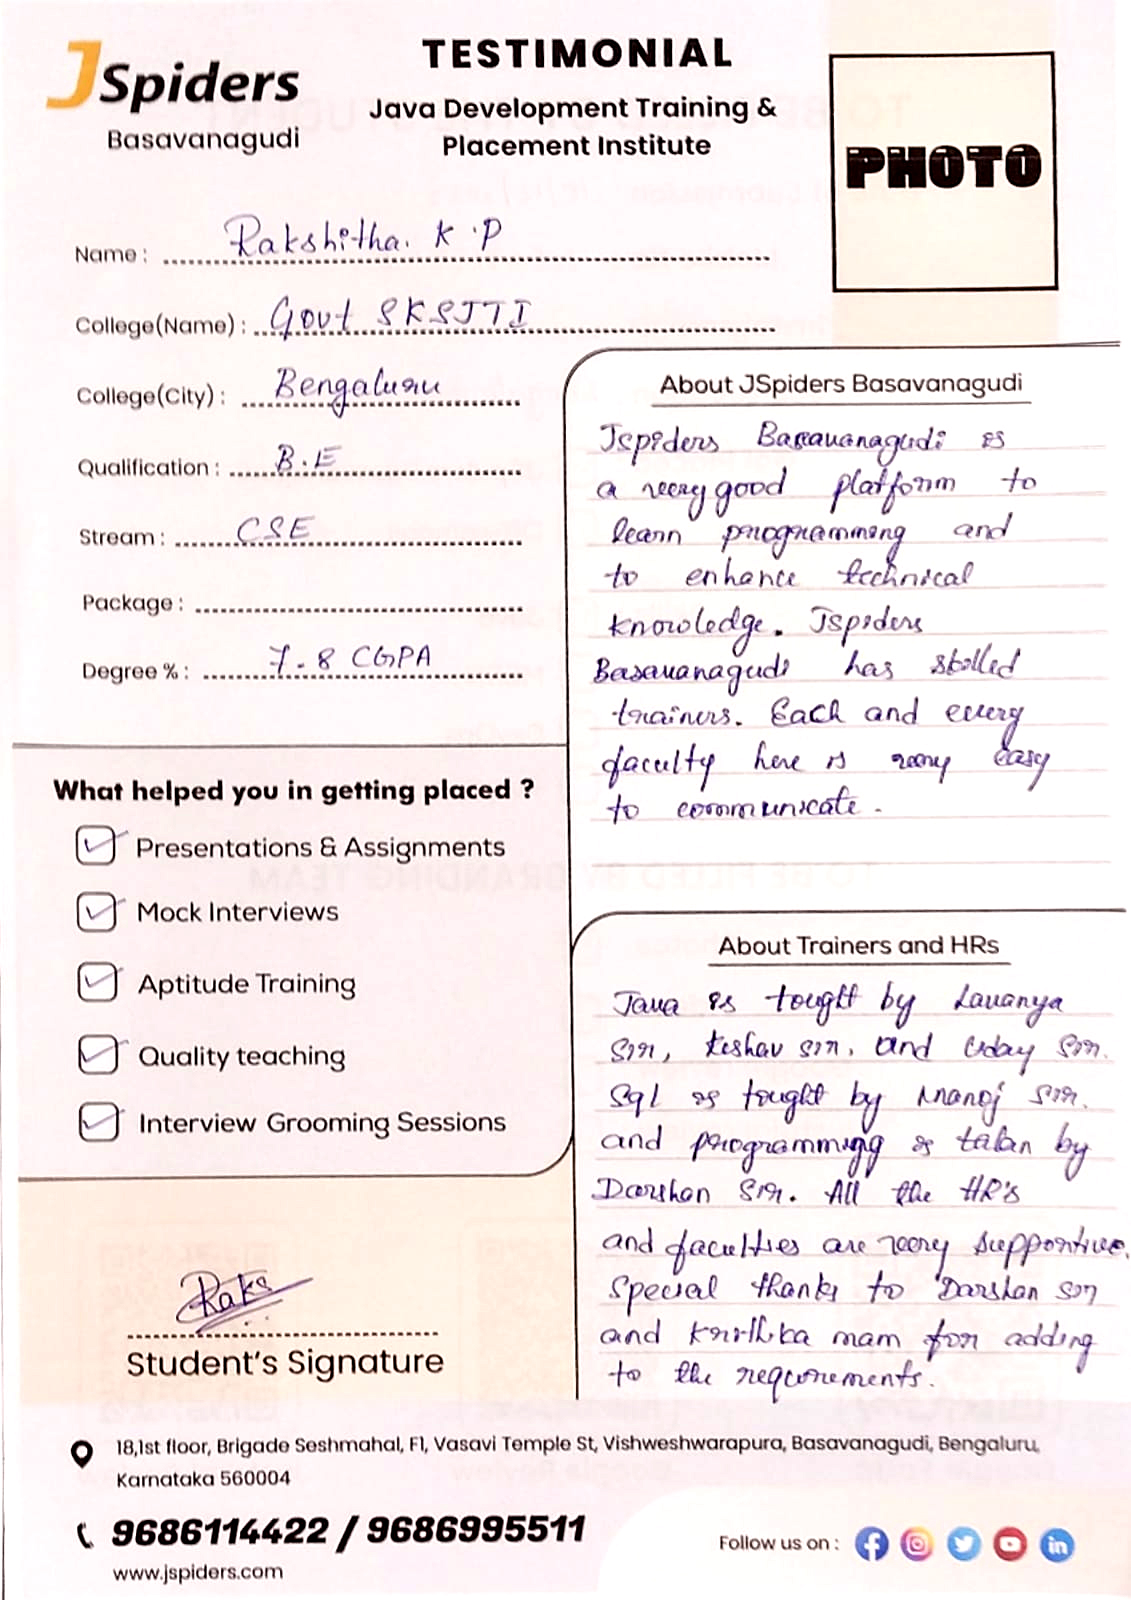 JSpiders
Basavanagudi
TESTIMONIAL
Java Development Training &
Placement Institute
PHOTO
Name : Rakshitha. K.P
College(Name) : Govt SKSJTI
College(City) : Bengaluru
Qualification : B.E
Stream : CSE
Package :
Degree % : 7.8 CGPA
What helped you in getting placed ?
Presentations & Assignments
Mock Interviews
Aptitude Training
Quality teaching
Interview Grooming Sessions
Raks
Student's Signature
About JSpiders Basavanagudi
Jspiders Basavanagudi is
a very good platform to
learn programming and
to enhance technical
knowledge. Jspiders
Basavanagudi has skilled
trainers. Each and every
faculty here is very easy
to communicate.
About Trainers and HRs
Java is tought by Lavanya
sir, Keshav sir, and Uday sir.
Sql is tought by Manoj sir.
and programmigg is takan by
Darshan Sir. All the HR's
and faculties are very supportive.
Special thanks to Darshan sir
and Krithika mam for adding
to the requirements.
18,1st floor, Brigade Seshmahal, F1, Vasavi Temple St, Vishweshwarapura, Basavanagudi, Bengaluru,
Karnataka 560004
9686114422 / 9686995511
www.jspiders.com
Follow us on :